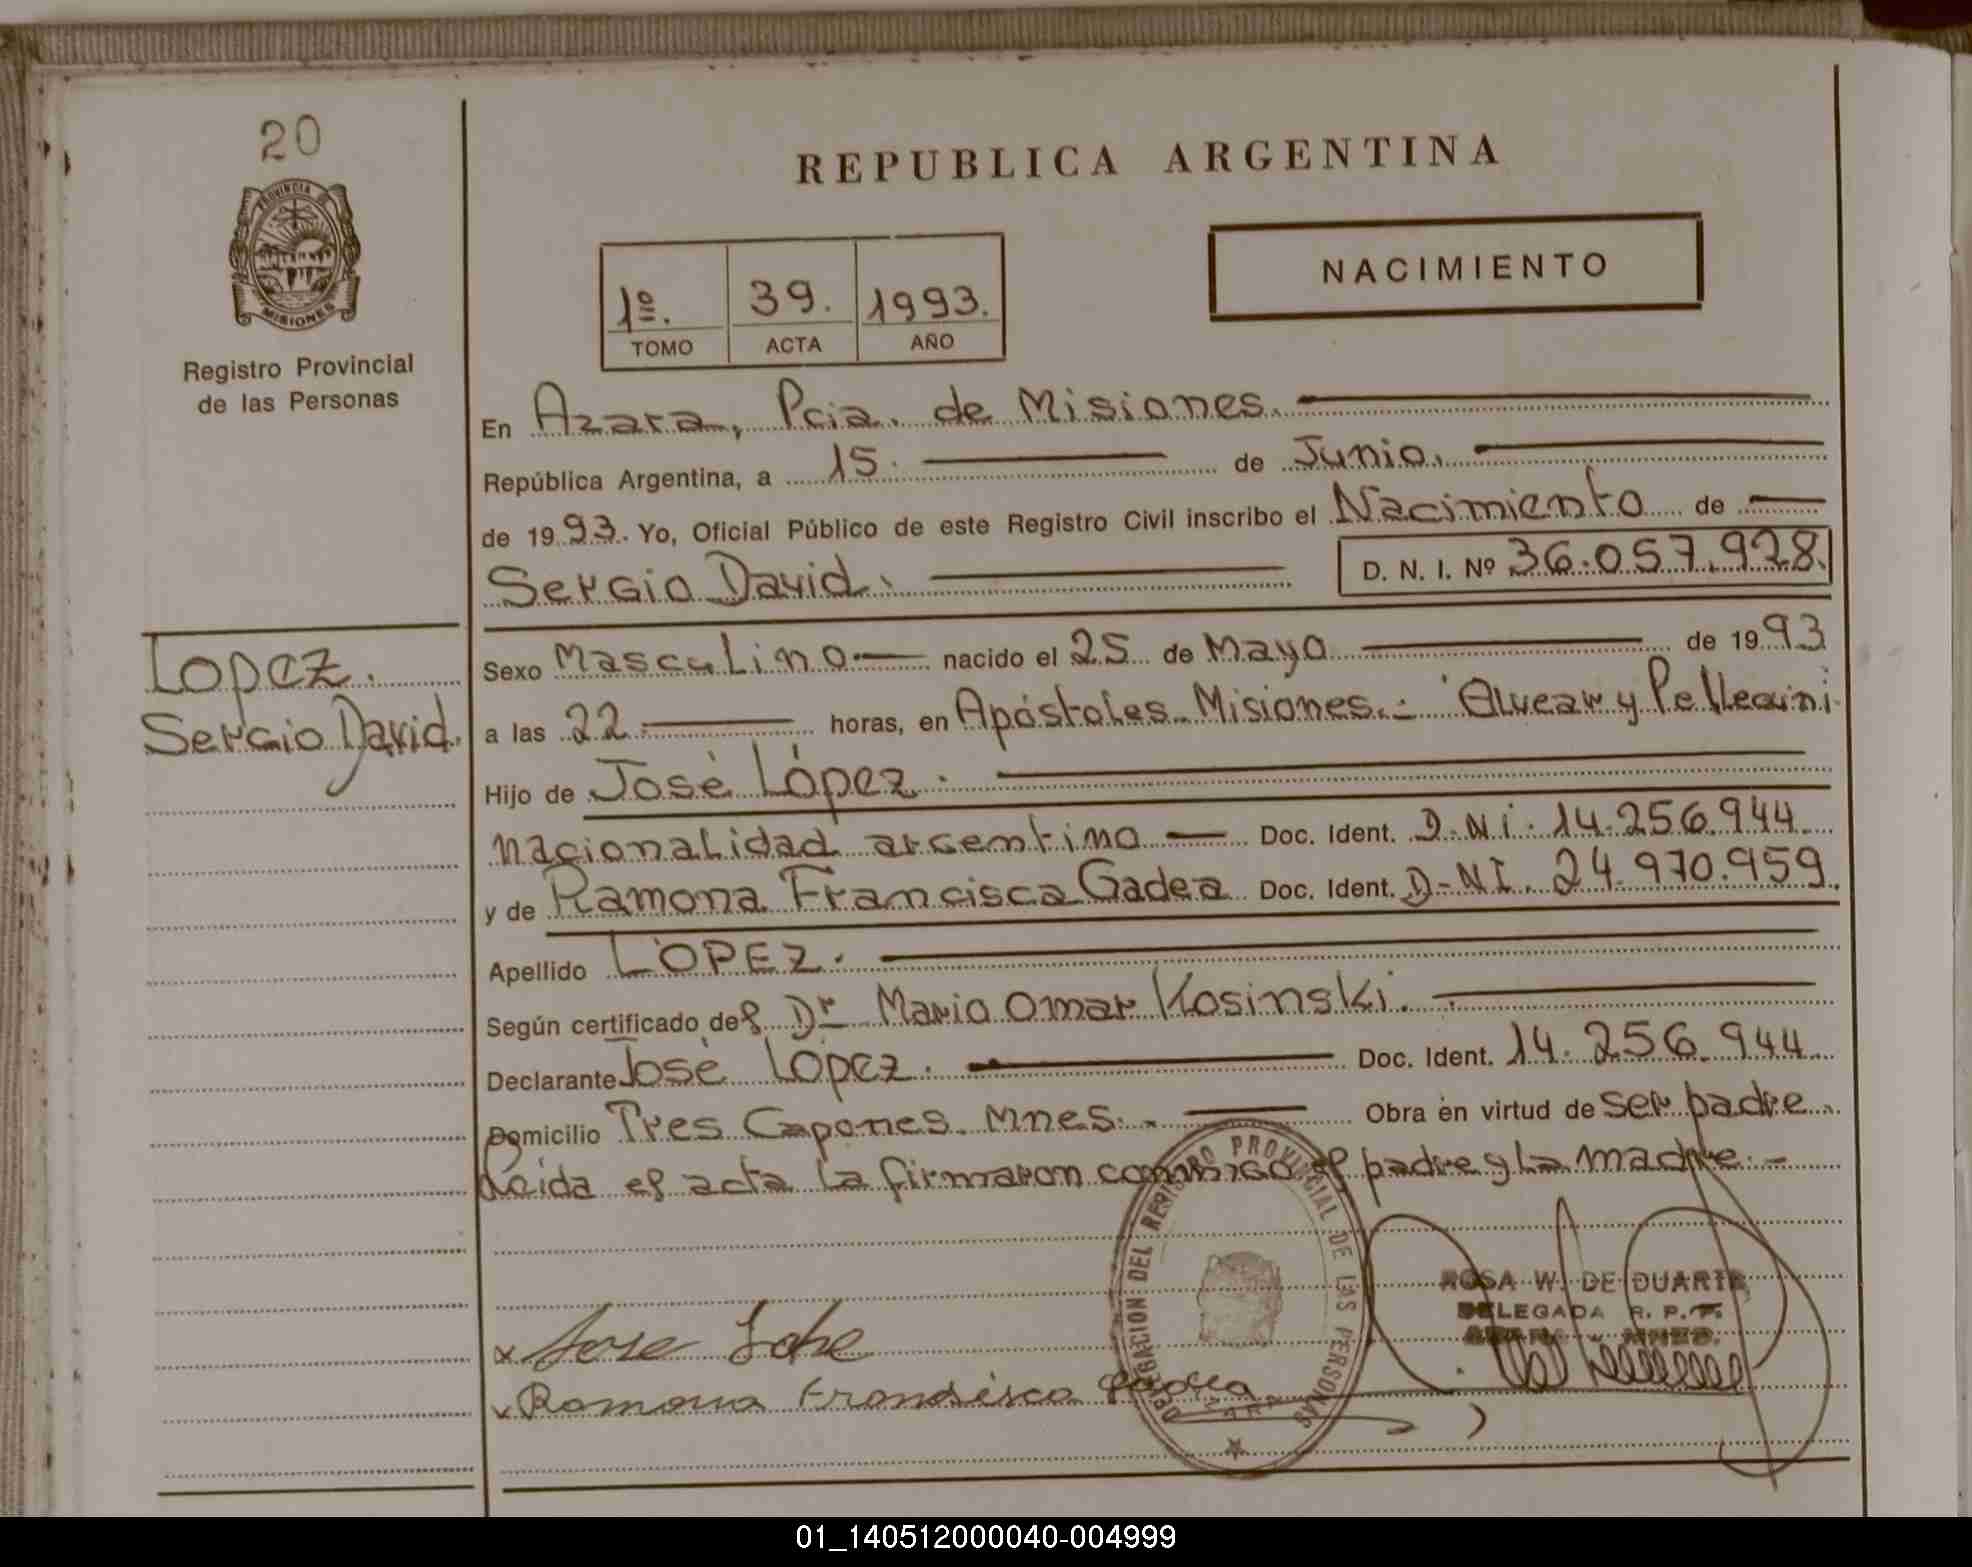 20
PROVINCIA DE
MISIONES
Registro Provincial
de las Personas
Lopez.
Sergio David.
REPUBLICA ARGENTINA
1º. 39. 1993.
TOMO ACTA AÑO
NACIMIENTO
En Azara, Pcia. de Misiones.
República Argentina, a 15. de Junio.
de 1993. Yo, Oficial Público de este Registro Civil inscribo el Nacimiento de
Sergio David. D. N. I. Nº 36.057.928.
Sexo Masculino nacido el 25 de Mayo de 1993
a las 22 horas, en Apóstoles Misiones.- Alvear y Pellegrini
Hijo de José López.
nacionalidad argentino Doc. Ident. D.N.i. 14.256.944
y de Ramona Francisca Gadea Doc. Ident. D-NI. 24.970.959.
Apellido LOPEZ.
Según certificado del Dr Mario Omar Kosinski.
Declarante José López. Doc. Ident. 14.256.944
Domicilio Tres Capones Mnes. Obra en virtud de ser padre.
Leida el acta la firmaron conmigo el padre y la madre.-
DELEGACION DEL REGISTRO PROVINCIAL DE LAS PERSONAS
ROSA W. DE DUARTE
DELEGADA R. P. P.
AZARA - MNES.
x Jose Lope
Ramona Francisca Gadea
01_140512000040-004999